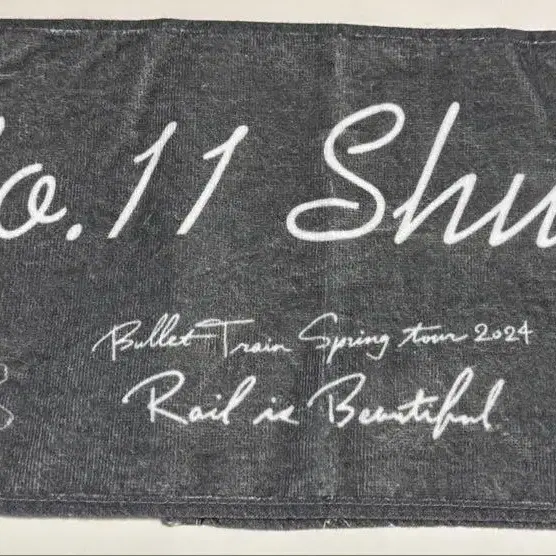 o. 11 Shu
Bullet Train Spring tour 2024
Rail is Beautiful